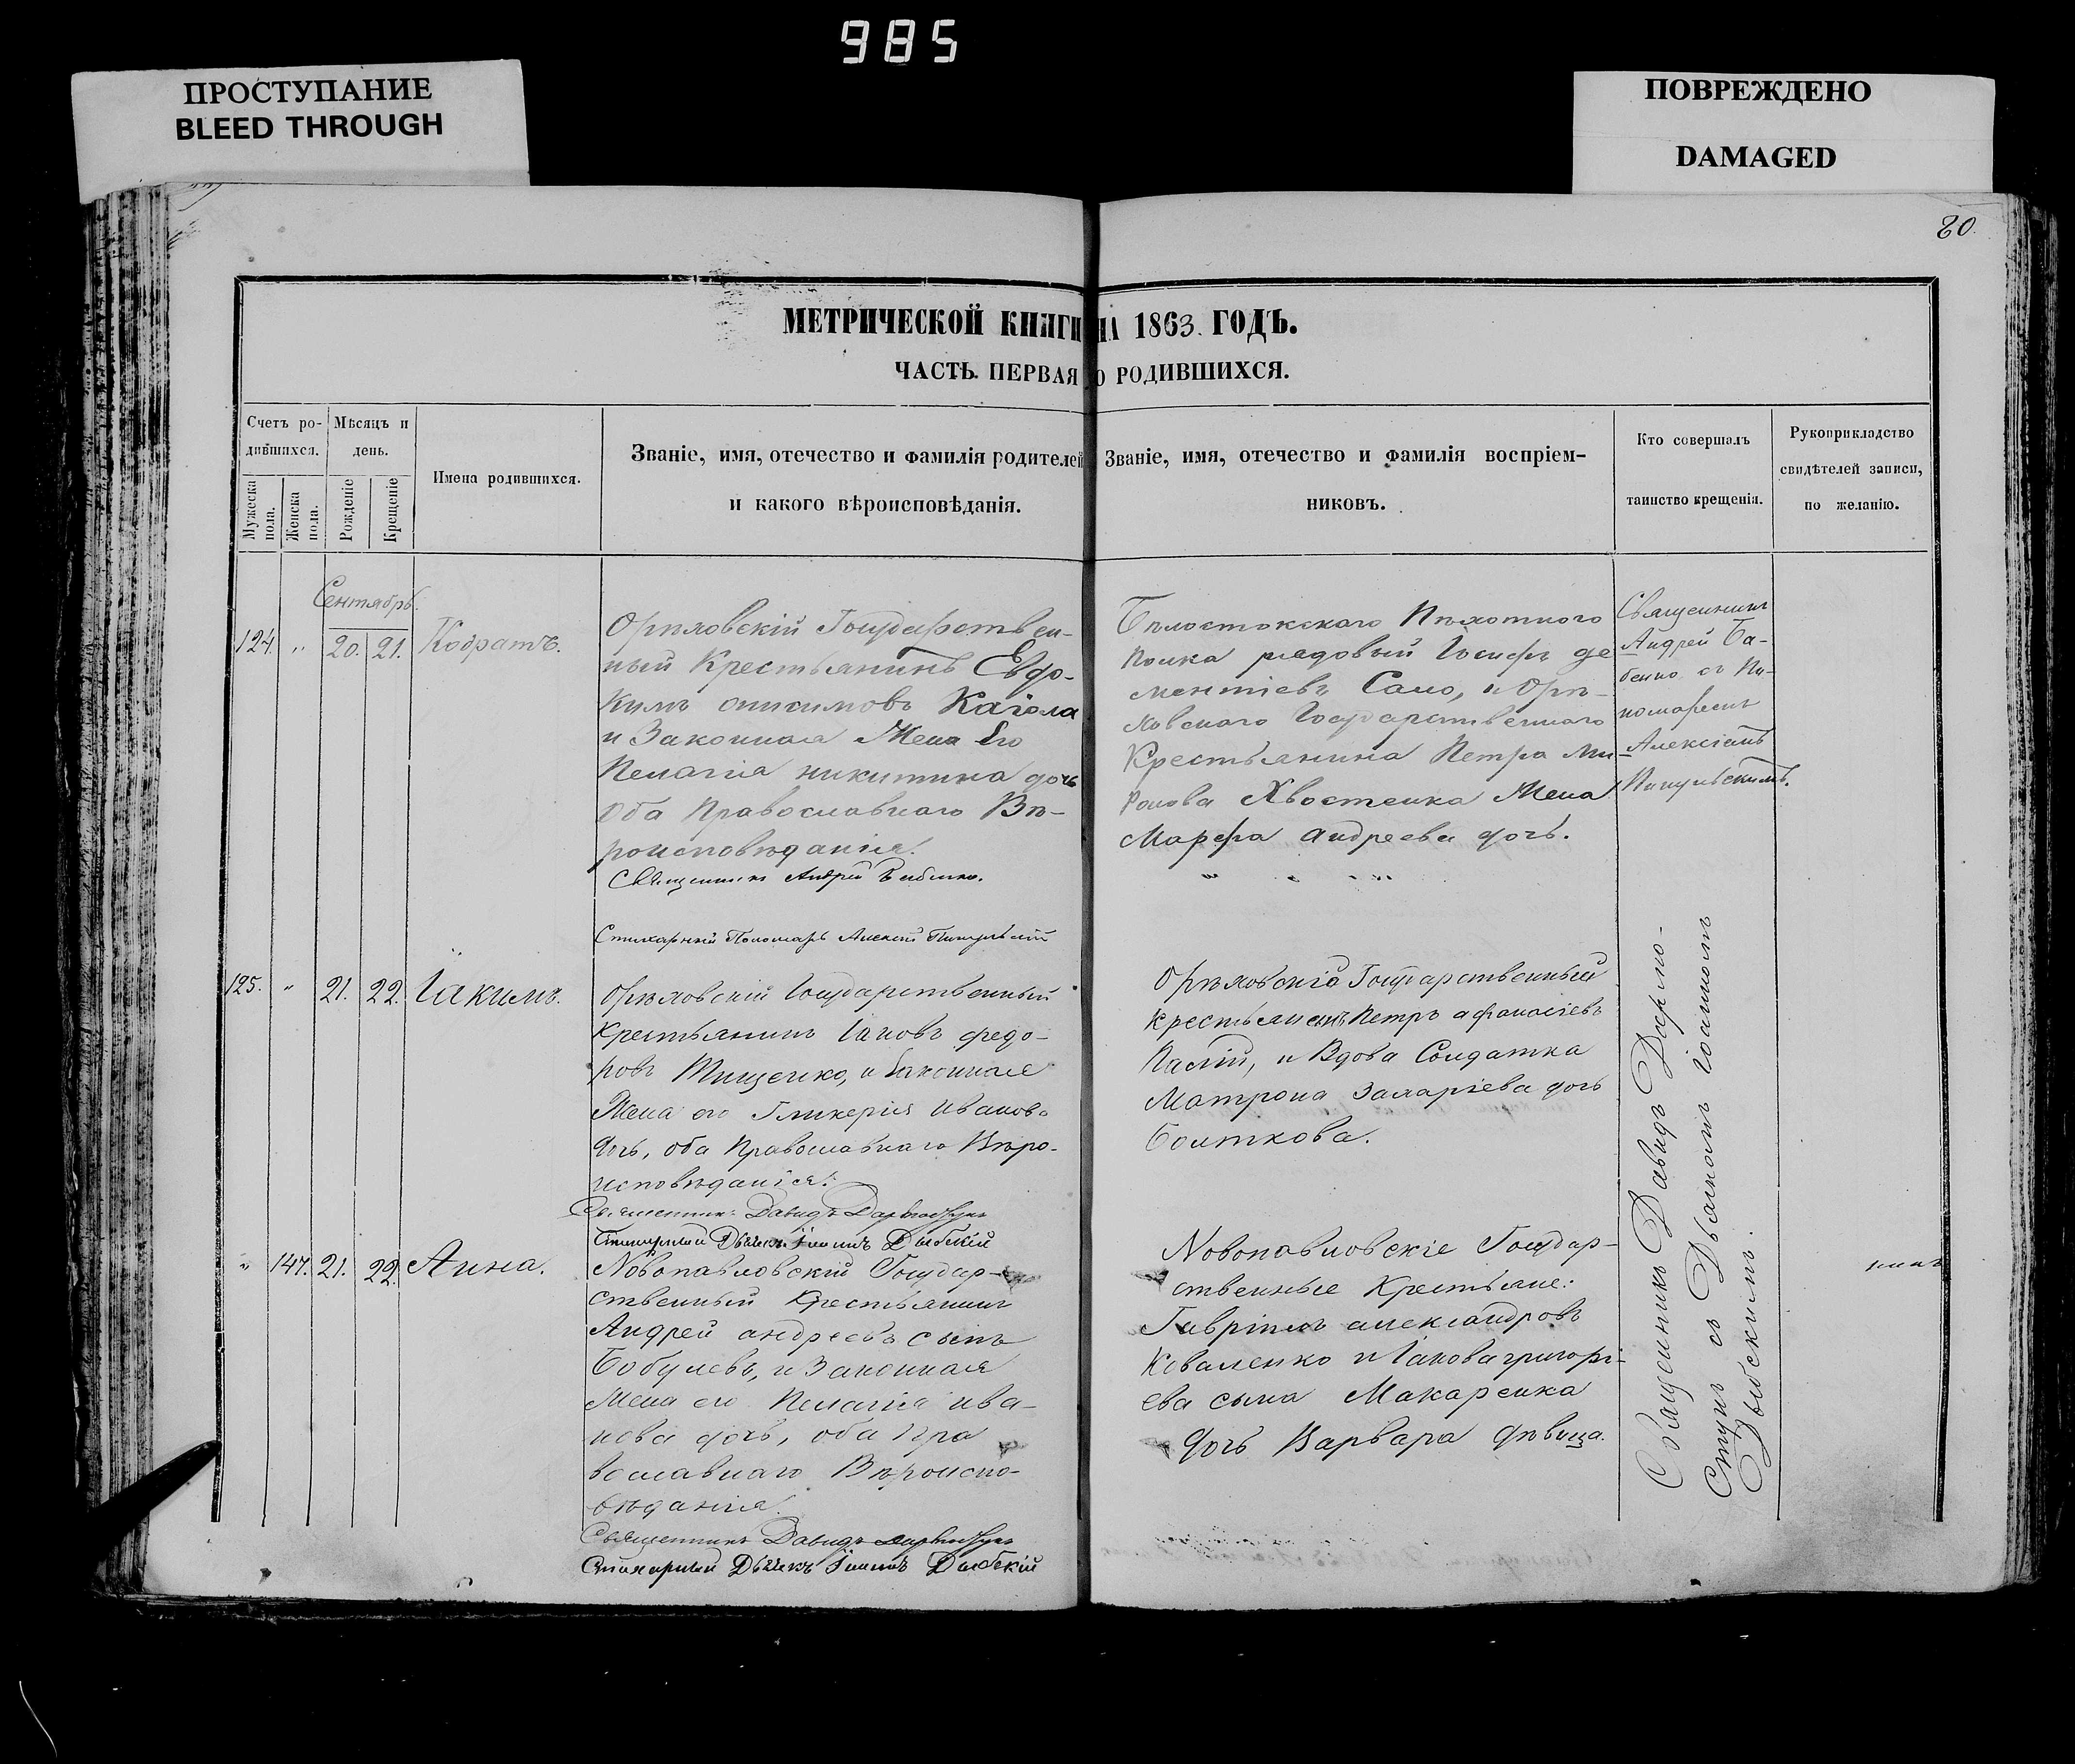 985
ПРОСТУПАНИЕ
BLEED THROUGH
ПОВРЕЖДЕНО
DAMAGED
80.
МЕТРИЧЕСКОЙ КНИГИ НА 1863. ГОДЪ.
ЧАСТЬ. ПЕРВАЯ О РОДИВШИХСЯ.
Счетъ ро-
дившихся.
Мужеска пола.
Женска пола.
Мѣсяцъ и
день.
Рожденіе
Крещеніе
Имена родившихся.
Званіе, имя, отечество и фамилія родителей
и какого вѣроисповѣданія.
Званіе, имя, отечество и фамилія воспріем-
никовъ.
Кто совершалъ
таинство крещенія.
Рукоприкладство
свидѣтелей записи,
по желанію.
Сентябрь.
124. " 20. 21. Кодратъ.
Орѣховскій Государствен-
ный Крестьянинъ Евдо-
кимъ онисимовъ Кагола
и Законная Жена Его
Пелагіа никитина дочь
Оба Православнаго Вѣ-
роисповѣданія.
Священникъ Андрей Бабенко.
Стихарный Пономарь Алексій
Бѣлостокскаго Пѣхотнаго
Полка рядовый Іосифъ де
ментіевъ Само, и Орѣ-
ховскаго Государственнаго
Крестьянина Петра Ми-
ронова Хвостенка Жена
Марфа андреева дочь.
Священникъ
Андрей Ба-
бенко съ По-
номаремъ
Алексіемъ
125. " 21. 22. Іакимъ.
Орѣховскій Государственный
крестьянинъ Іаковъ федо-
ровъ Тищенко, и Законная
Жена его Гликерія Иванова
дочь, оба Православнаго Вѣро-
исповѣданія.
Священникъ Давидъ
Стихарный Дьячекъ Іоаннъ Дыбскій
Орѣховскій Государственный
крестьянинъ Петръ афанасіевъ
Палій, и Вдова Солдатка
Матрона Захаріева дочь
Болткова.
" 147. 21. 22. Анна.
Новопавловскій Государ-
ственный Крестьянинъ
Андрей андреевъ сынъ
Бобулевъ, и Законная
Жена его Пелагіа ива-
нова дочь, оба Пра
вославнаго Вѣроиспо-
вѣданія.
Священникъ Давидъ
Стихарный Дьячекъ Іоаннъ Дыбскій
Новопавловскіе Государ-
ственные Крестьяне:
Гавріилъ александровъ
Коваленко и Іакова григорі-
ева сына Макаренка
дочь Варвара дѣвица.
Священникъ Давидъ
съ Дьячкомъ Іоанномъ
Дыбскимъ.